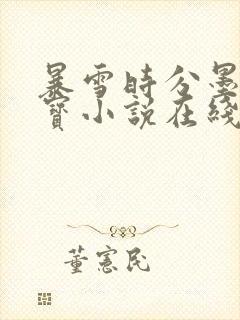 暴雪時分墨
寶小說在綫
董憲民